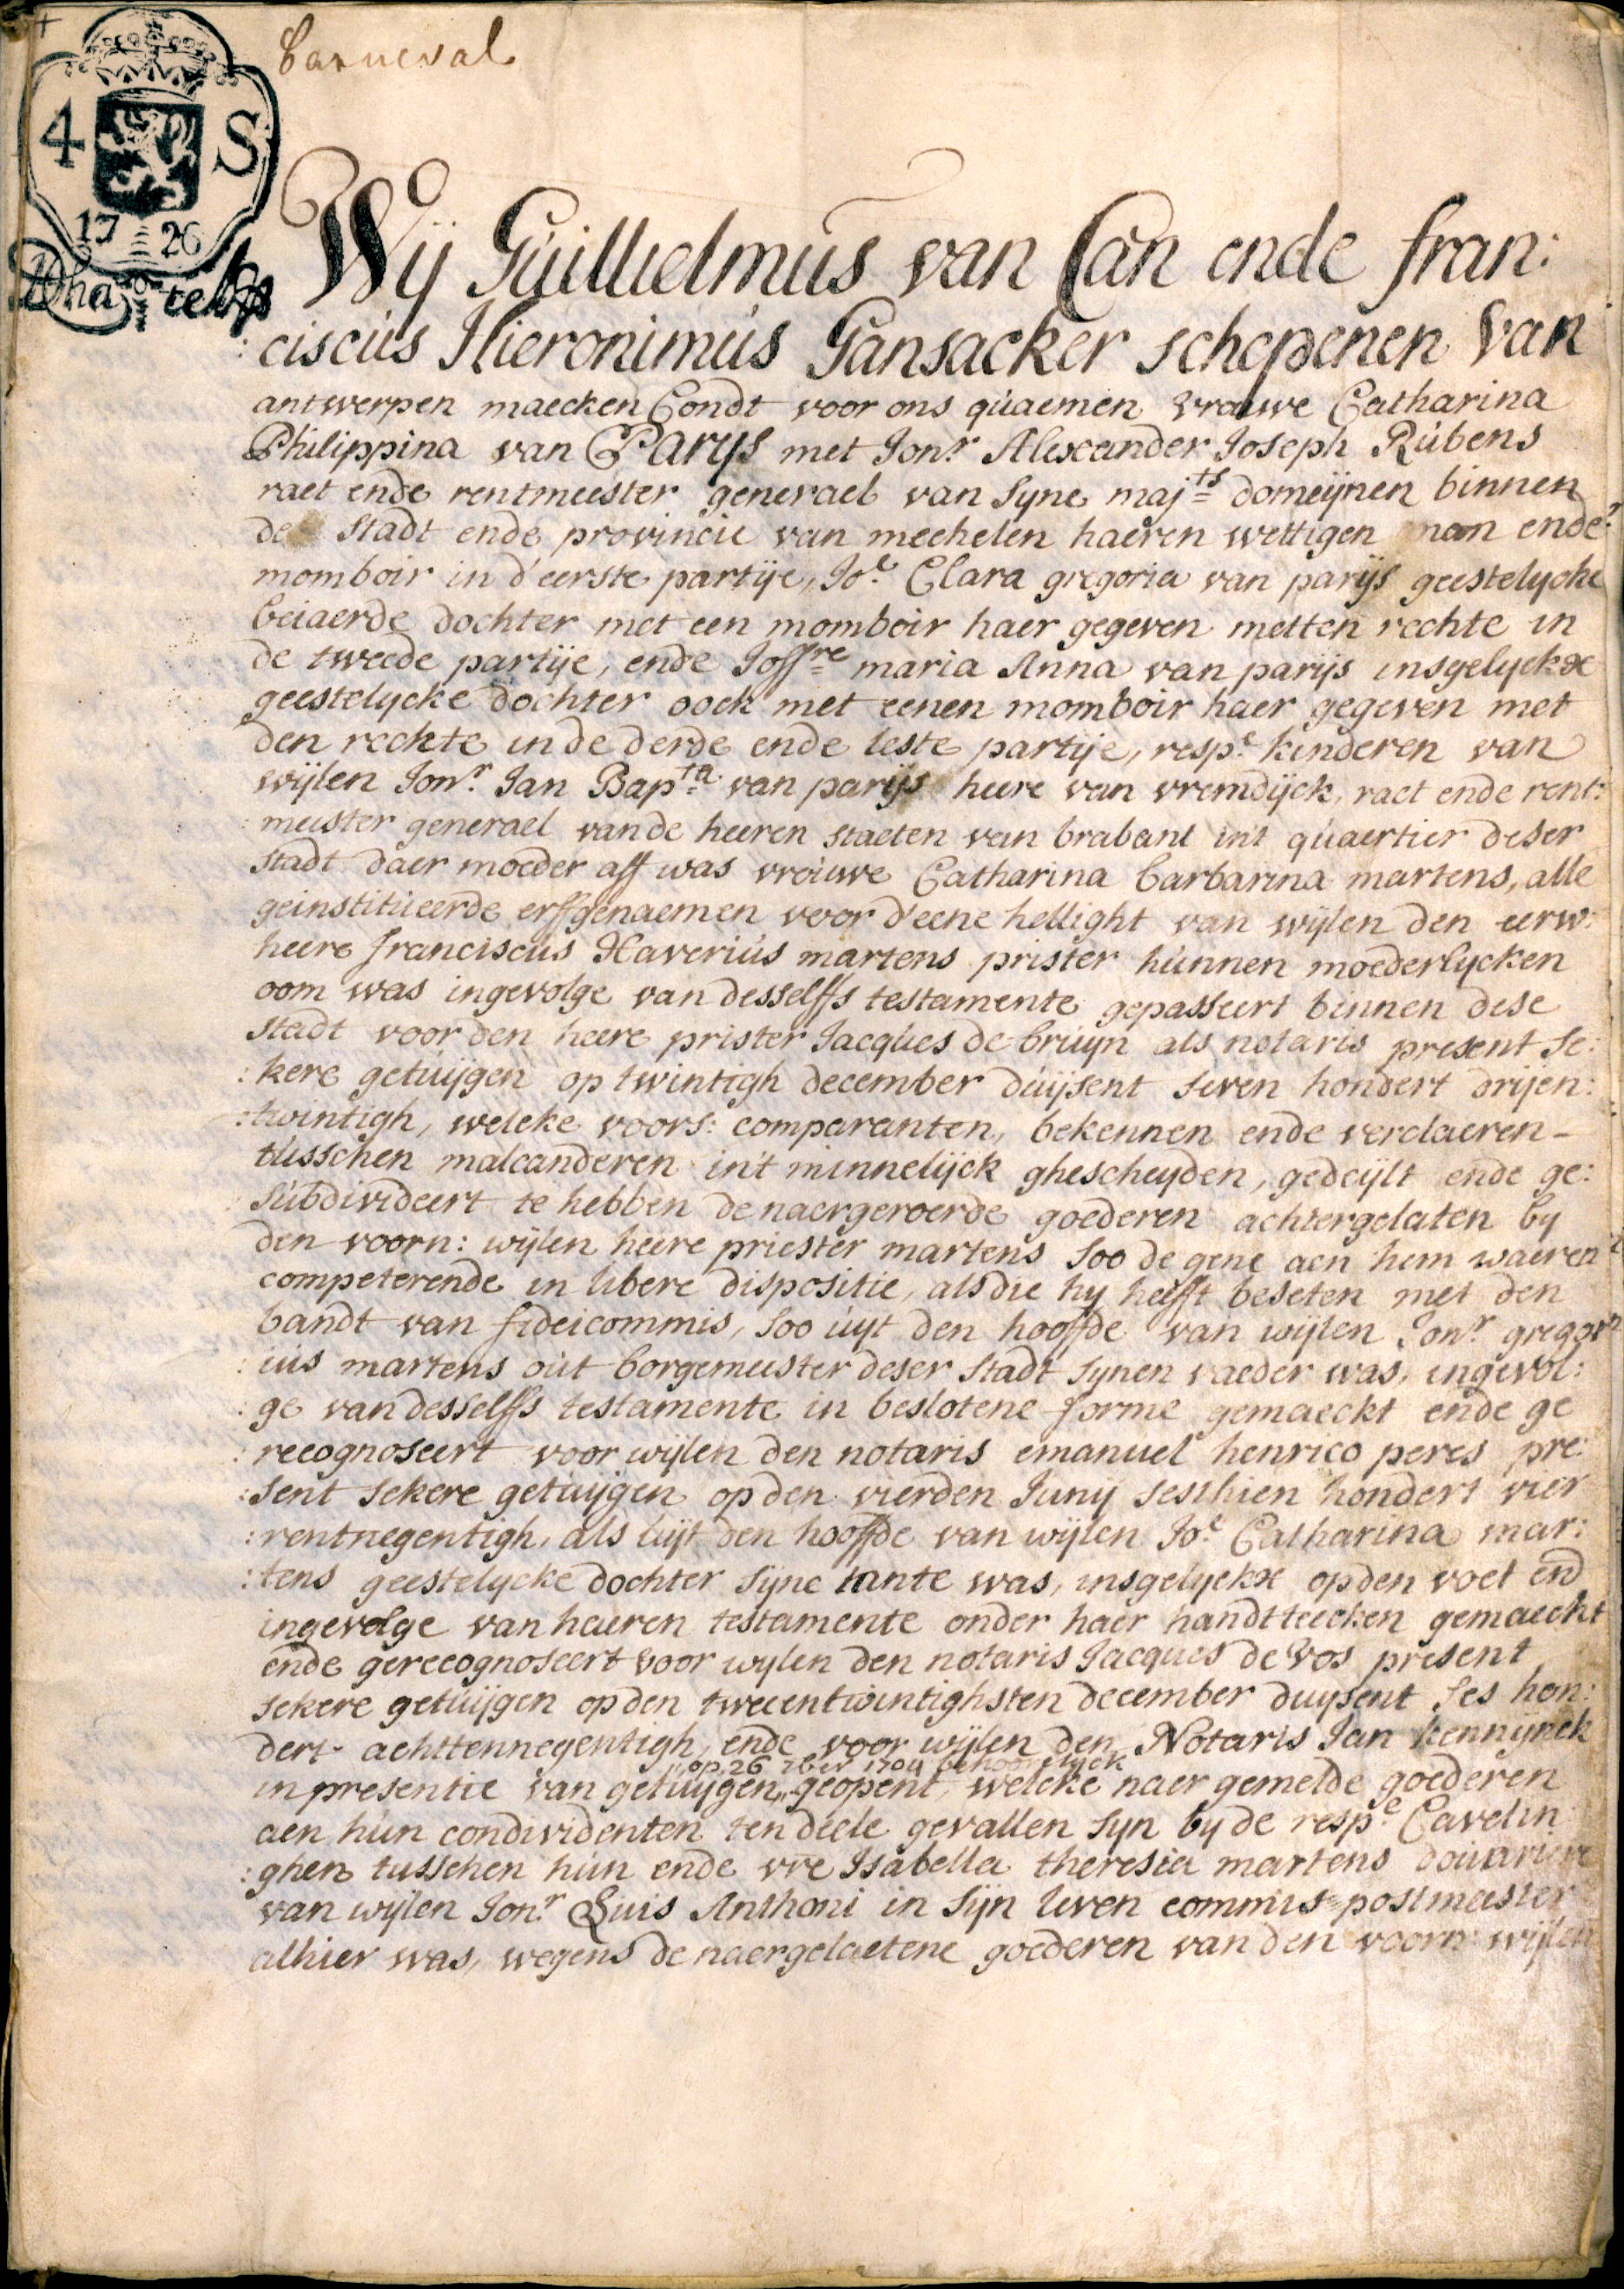 Carneval
4 S
17 26
Wij Guillielmus van Can ende fran:
:ciscus Hieronimus Gansacker schepenen van
antwerpen maecken Condt voor ons quaemen vrauwe Catharina
Philippina van Parys met Jonr Alexander Joseph Rubens
raet ende rentmeester generael van syne majts domeijnen binnen
de stadt ende provincie van mechelen haeren wettigen man ende
momboir in d'eerste partije, Joe Clara gregoria van parijs geestelycke
beiaerde dochter met een momboir haer gegeven metten rechte in
de tweede partije, ende Joffre maria Anna van parijs insgelyckx
geestelycke dochter oock met eenen momboir haer gegeven met
den rechte in de derde ende leste partije, respe kinderen van
wijlen Jonr Jan Bapta van parijs heere van vremdijck, raet ende rent:
:meester generael vande heeren staeten van brabant int quaertier deser
stadt daer moeder aff was vrouwe Catharina barbarina martens, alle
geinstitueerde erfgenaemen voor d'eene hellight van wijlen den eerw:
heere franciscus Xaverius martens prister hunnen moederlycken
oom was ingevolge van desselffs testamente gepasseert binnen dese
stadt voor den heere prister Jacques de bruijn als notaris present se:
:kere getuijgen op twintigh december duijsent seven hondert drijen:
:twintigh, welcke voors: comparanten, bekennen ende verclaeren-
tusschen malcanderen in't minnelijck ghescheyden, gedeijlt ende ge:
subdivideert te hebben de naergeroerde goederen achtergelaten by
den voorn: wijlen heere priester martens soo de gene aen hem waeren
competerende in libere dispositie, als die hy heefft beseten met den
bandt van fideicommis, soo uijt den hooffde van wijlen Jonr gregor
:ius martens out borgemeester deser stadt synen vaeder was, ingevol:
:ge van desselffs testamente in beslotene forme gemaeckt ende ge
:recognoseert voor wijlen den notaris emanuel henrico peres pre
:sent sekere getuijgen op den vierden Juny sesthien hondert vier
:rentnegentigh, als uijt den hooffde van wijlen Joe Catharina mar:
:tens geestelycke dochter sijne tante was, insgelyckx op den voet end
ingevolge van haeren testamente onder haer handtteecken gemaeckt
ende gerecognoseert voor wylen den notaris Jacques de Vos present
sekere getuijgen op den tweeentwintighsten december duysent ses hon:
dert achttennegentigh, ende voor wijlen den Notaris Jan kennijnck
op 26 7ber 1704 behoorlijck
in presentie van getuijgen geopent, welcke naer gemelde goederen
aen hun condividenten ten deele gevallen syn by de respe Cavelin
:ghen tusschen hun ende vre Isabella theresia martens douariere
van wijlen Jonr Luis Anthoni in sijn leven commis postmeester
alhier was, wegens de naergelaetene goederen van den voorn wijlen